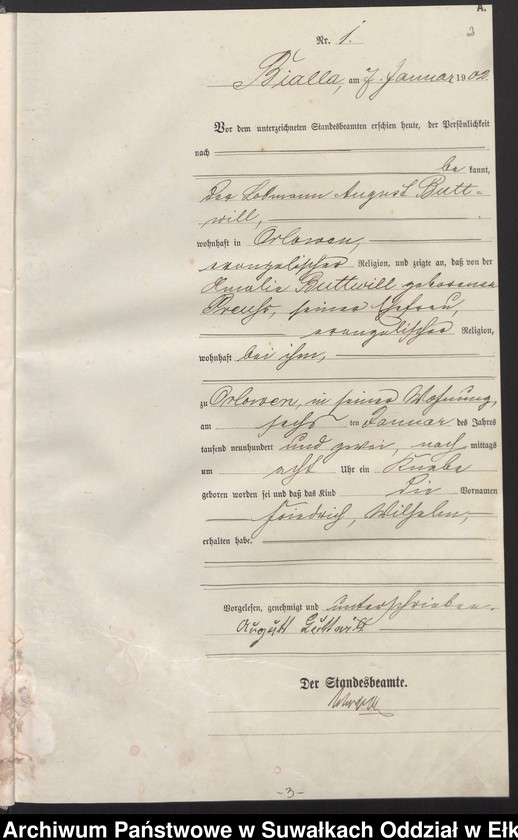 A.
2
Nr. 1.
Bialla, am 7. Januar 1902.
Vor dem unterzeichneten Standesbeamten erschien heute, der Persönlichkeit
nach
be kannt,
der Losmann August Butt-
will,
wohnhaft in Orlowen,
evangelischer Religion, und zeigte an, daß von der
Amalie Buttwill geborenen
Preuß, seiner Ehefrau,
evangelischer Religion,
wohnhaft bei ihm,
zu Orlowen, in seiner Wohnung,
am sechs ten Januar des Jahres
tausend neunhundert und zwei, nach mittags
um acht Uhr ein Knabe
geboren worden sei und daß das Kind die Vornamen
Friedrich, Wilhelm,
erhalten habe.
Vorgelesen, genehmigt und unterschrieben.
August
Der Standesbeamte.
-3-
Archiwum Państwowe w Suwałkach Oddział w Ełk